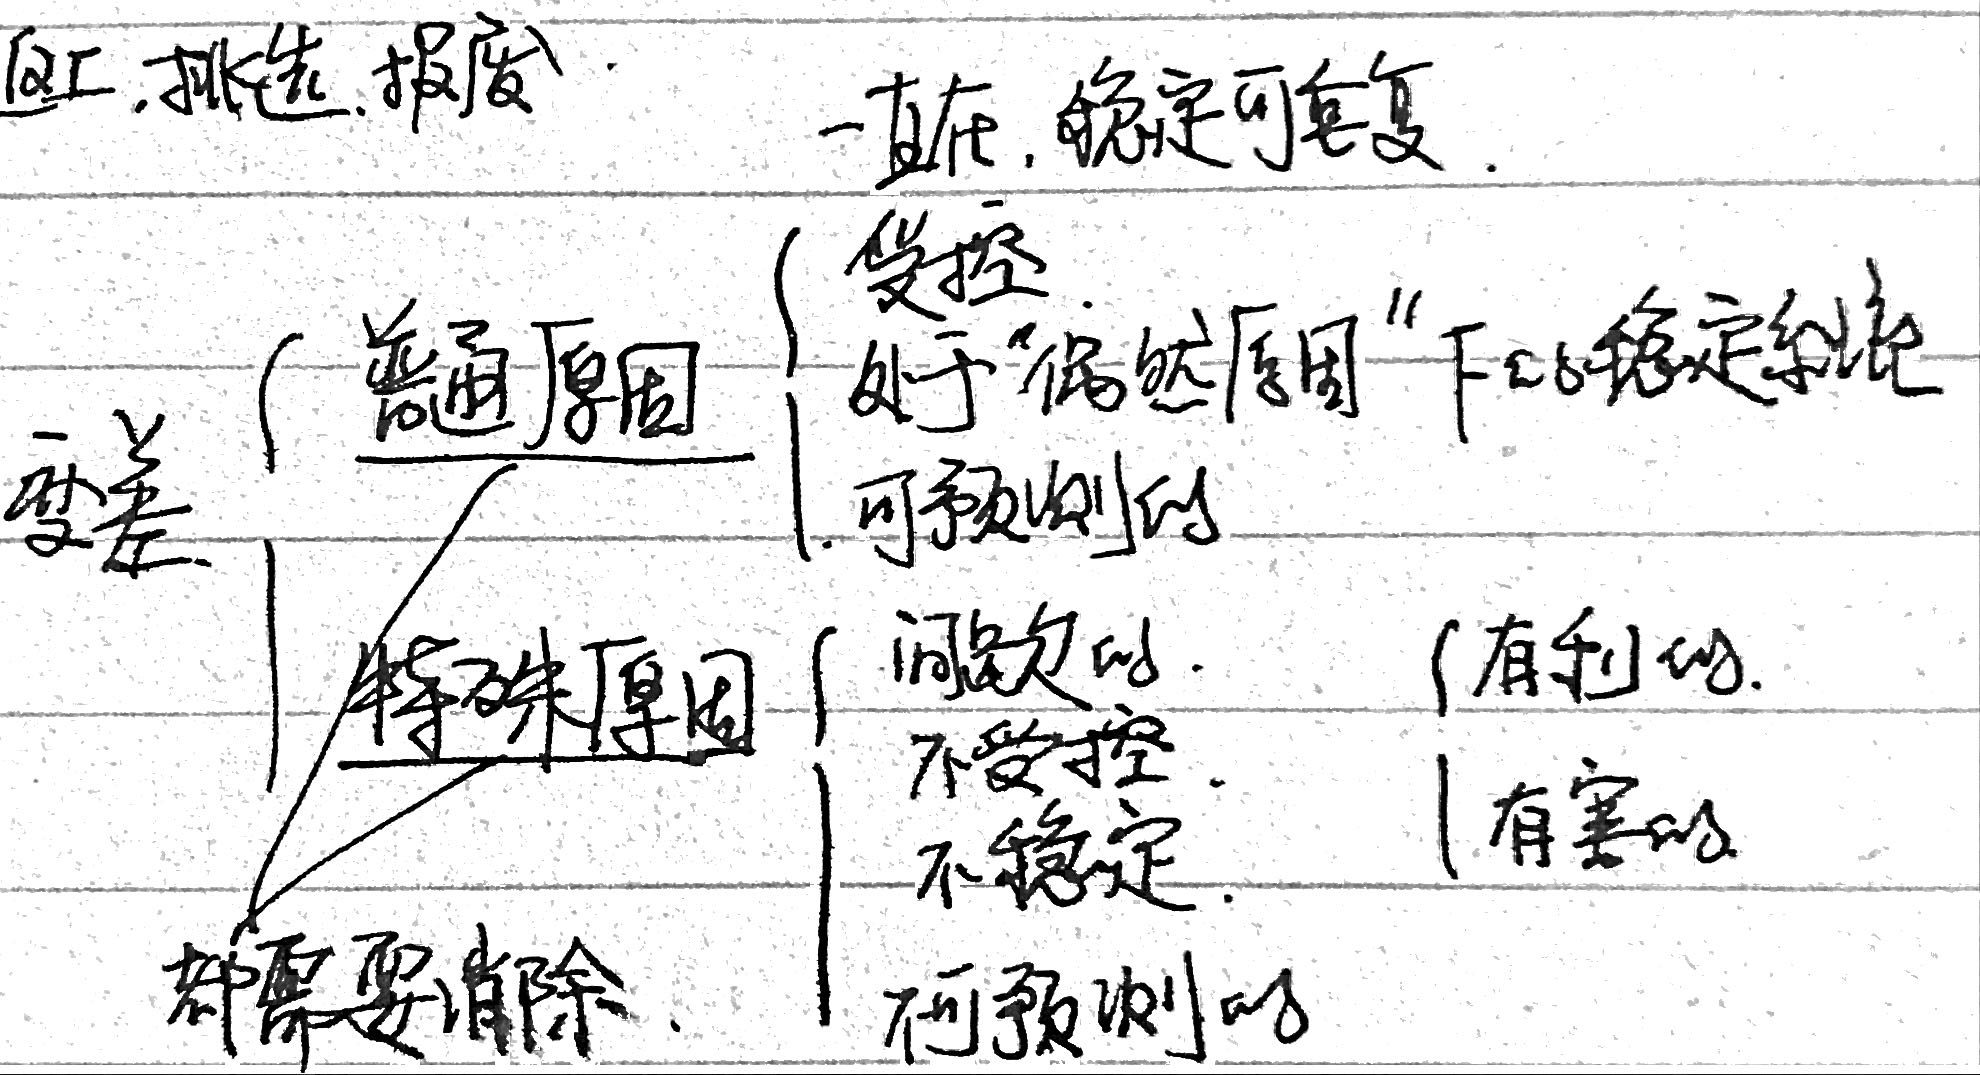 返工.挑选.报废.
一直在.稳定可重复.
变差
普通原因
受控.
处于“偶然原因”下的稳定系统
可预测的
特殊原因
间歇的.
不受控.
不稳定.
不可预测的
有利的.
有害的.
都需要消除.